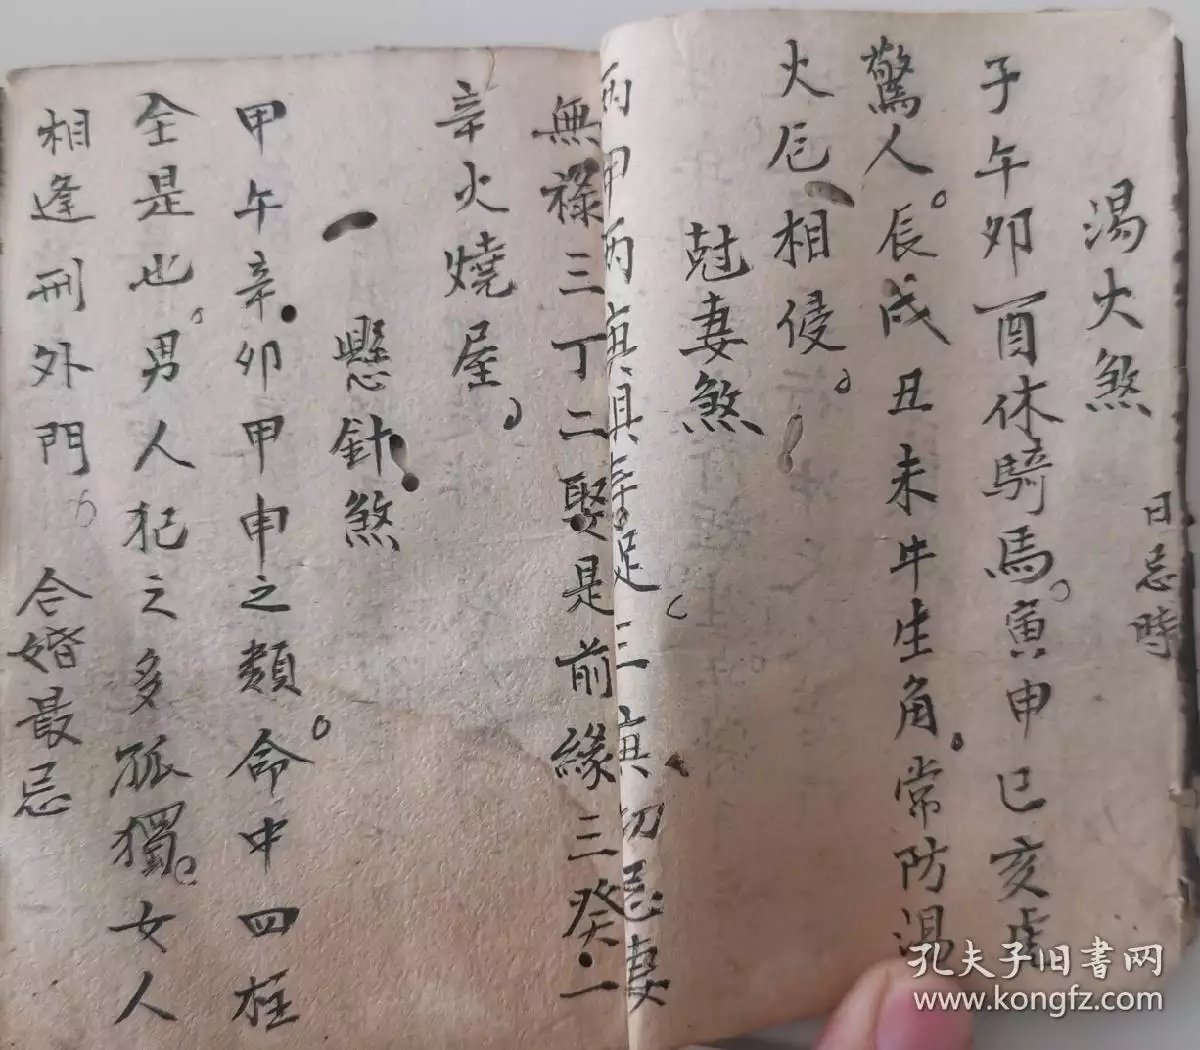 湯火煞
日忌時
子午卯酉休騎馬。寅申巳亥虎
驚人。辰戌丑未牛生角。常防湯
火厄相侵。
尅妻煞
足三 切忌妻
無祿三丁二娶是前緣三癸一
辛火燒屋。
懸針煞
甲午辛卯甲申之類。命中四柱
全是也。男人犯之多孤獨。女人
相逢刑外門。合婚最忌
孔夫子旧书网
www.kongfz.com